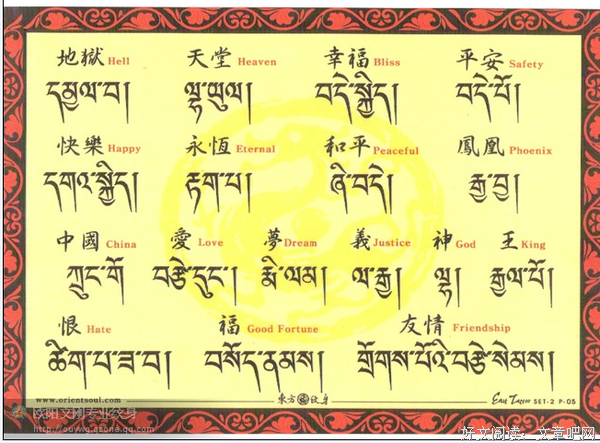 地獄 Hell 天堂 Heaven 幸福 Bliss 平安 Safety
དམྱལ་བ། ལྷ་ཡུལ། བདེ་སྐྱིད། བདེ་པོ།
快樂 Happy 永恆 Eternal 和平 Peaceful 鳳凰 Phoenix
དགའ་སྐྱིད། རྟག་པ། ཞི་བདེ། རྒྱ་བྱ།
中國 China 愛 Love 夢 Dream 義 Justice 神 God 王 King
ཀྲུང་གོ བརྩེ་དུང། རྨི་ལམ། ལ་རྒྱ། ལྷ། རྒྱལ་པོ།
恨 Hate 福 Good Fortune 友情 Friendship
ཚིག་པ་ཟ་བ། བསོད་ནམས། གྲོགས་པོའི་བརྩེ་སེམས།
www.orientsoul.com 東方 紋身 East Tattoo SET-2 P-05
欧阳文刚专业纹身
http://ouywg.asone.qq.com
好文阅读:文章吧网